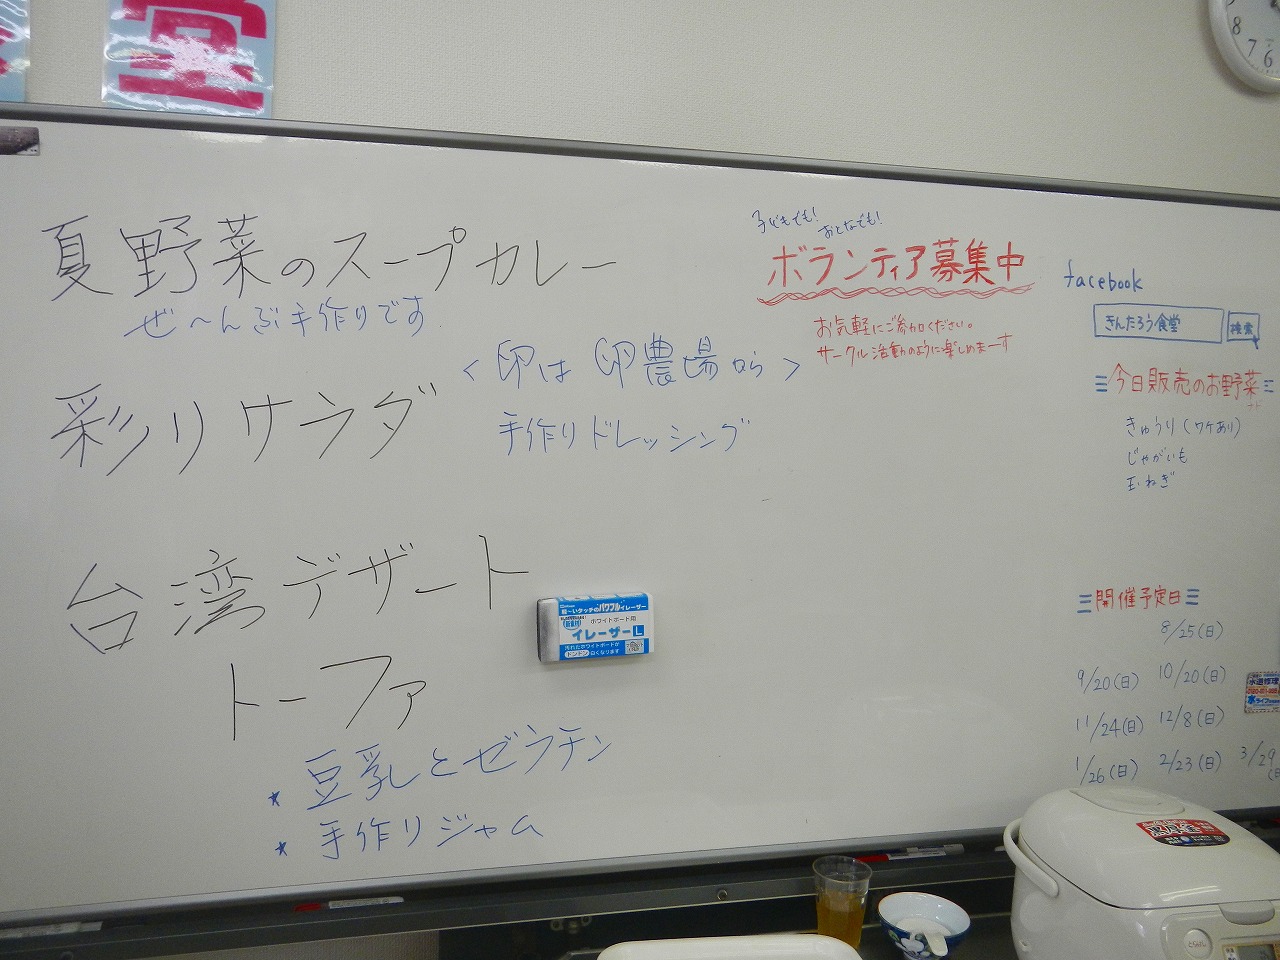 堂
8
7
6
夏野菜のスープカレー
ぜ〜んぶ手作りです
<卵は 卵農場から>
彩りサラダ
手作りドレッシング
台湾デザート
トーファ
* 豆乳とゼラチン
* 手作りジャム
子どもでも!
おとなでも!
ボランティア募集中
お気軽にご参加ください。
サークル活動のように楽しめまーす
facebook
きんたろう食堂 検索
今日販売のお野菜
きゅうり(ワケあり)
じゃがいも
玉ねぎ
開催予定日
8/25(日)
9/20(日) 10/20(日)
11/24(日) 12/8(日)
1/26(日) 2/23(日) 3/29
パワフルイレーザー
ホワイトボード用
イレーザーL
汚れたホワイトボードが
ドンドン白くなります
水道修理